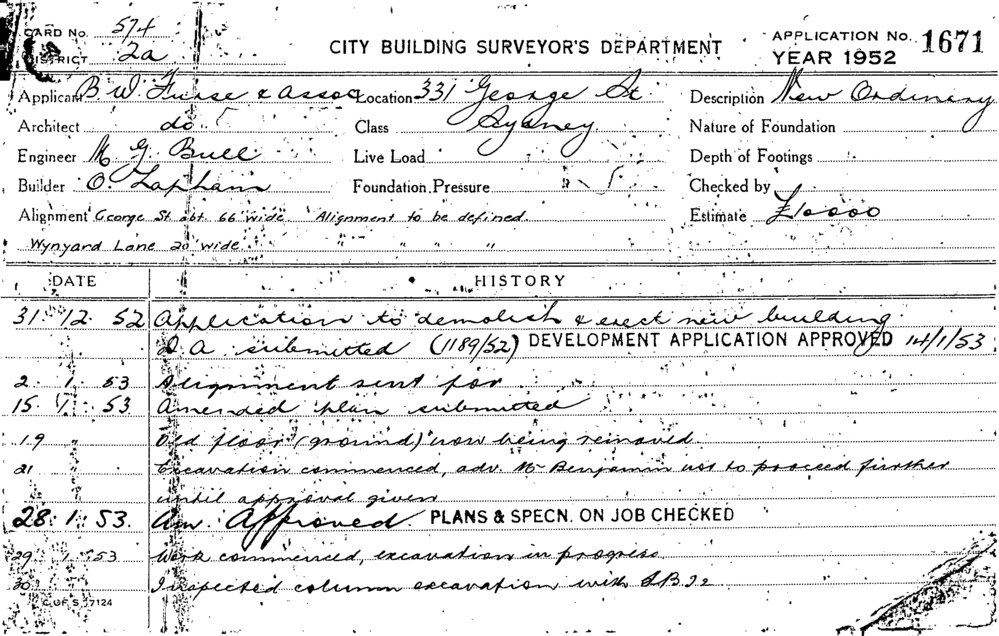 CARD No. 574
DISTRICT 2a
CITY BUILDING SURVEYOR'S DEPARTMENT
APPLICATION No. 1671
YEAR 1952
Applicant B W Furse & assoc Location 331 George St Description New Ordinary
Architect do Class Sydney Nature of Foundation
Engineer M G Bull Live Load Depth of Footings
Builder O. Lapham Foundation Pressure Checked by
Alignment George St abt 66 wide Alignment to be defined Estimate £10000
Wynyard Lane 20 wide " " " "
DATE HISTORY
31 12 52 Application to demolish & erect new building
D A submitted (1189/52) DEVELOPMENT APPLICATION APPROVED 14/1/53
2 1 53 Alignment sent for
15 1 53 Amended plan submitted
19 " Old floor (ground) now being removed
21 " Excavation commenced, adv. Mr Benjamin not to proceed further
until approval given
28 1 53. Approved. PLANS & SPECN. ON JOB CHECKED
29 1 53 Work commenced, excavation in progress
30 " Inspected column excavation with
C. OF S. 7124